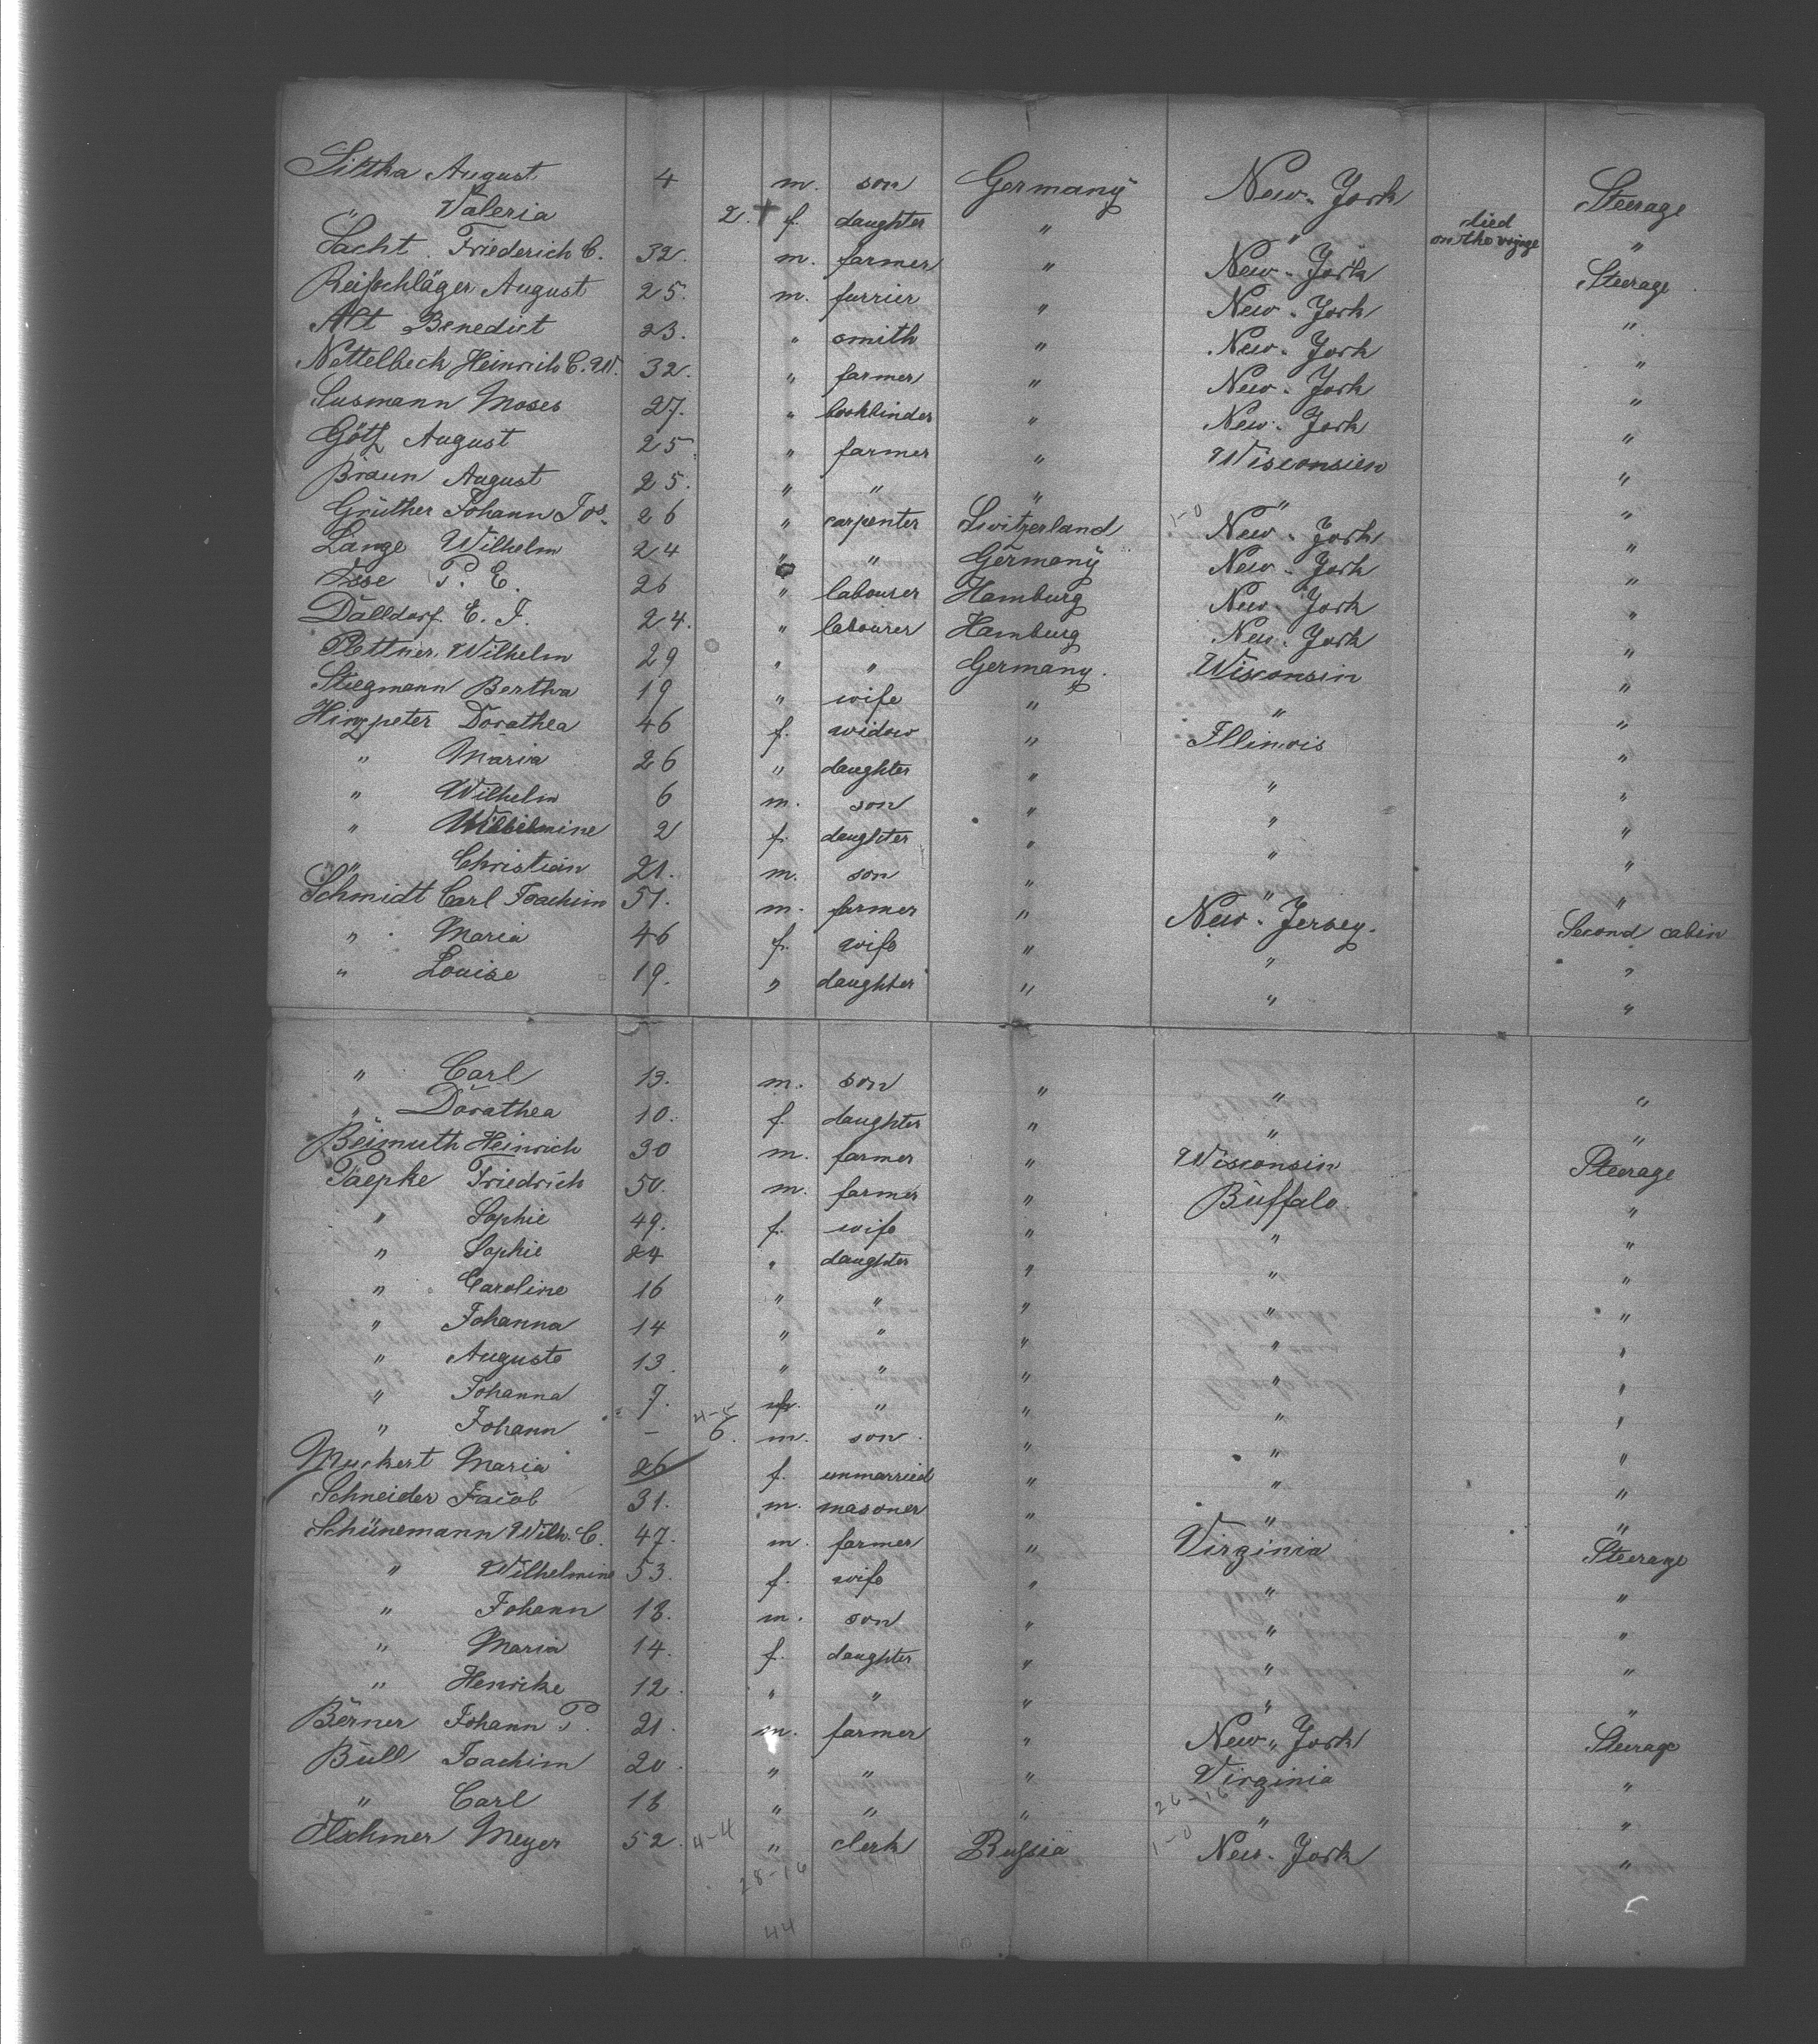 Siltha August 4 m. son Germany New-York Steerage
" Valeria 2. † f. daughter " " died on the voyage "
Sacht Friederich C. 32. m. farmer " New-York Steerage
Reifschläger August 25. m. furrier " New-York "
Alt Benedict 23. " smith " New-York "
Nettelbeck Heinrich C. W. 32. " farmer " New-York "
Susmann Moses 27. " bookbinder " New-York "
Götz August 25. " farmer " Wisconsien "
Braun August 25. " " " " "
Grüther Johann Jos. 26 " carpenter Switzerland 1-0 New-York "
Lange Wilhelm 24 " " Germany New-York "
P. E. 26 " labourer Hamburg New-York "
Dalldorf E. J. 24. " labourer Hamburg New-York "
Plettner Wilhelm 29 " " Germany. Wisconsin "
Stiegmann Bertha 19 " wife " " "
Hinzpeter Dorathea 46 f. widow " Illinois "
" Maria 26 " daughter " " "
" Wilhelm 6 m. son " " "
" Wilhelmine 2 f. daughter " " "
" Christian 21. m. son " " "
Schmidt Carl Joachim 51. m. farmer " New-Jersey. Second cabin
" Maria 46 f. wife " " "
" Louise 19. " daughter " " "
" Carl 13. m. son " " "
" Dorathea 10. f. daughter " " "
Beimuth Heinrich 30 m. farmer " Wisconsin Steerage
Paepke Friedrich 50. m. farmer " Buffalo "
" Sophie 49. f. wife " " "
" Sophie 24 " daughter " " "
" Caroline 16 " " " " "
" Johanna 14 " " " " "
" Auguste 13. " " " " "
" Johanna 7. f. " " " "
" Johann - 4-5 6. m. son " " "
Muckert Maria 26 f. unmarried " " "
Schneider Jacob 31. m. masoner " " "
Schünemann Wilh. C. 47. m. farmer " Virginia Steerage
" Wilhelmine 53. f. wife " " "
" Johann 18. m. son " " "
" Maria 14. f. daughter " " "
" Henrike 12. " " " " "
Berner Johann P. 21. m. farmer " New-York Steerage
Bull Joachim 20. " " " Virginia "
" Carl 18 " " " 26-16 " "
Meyer 52. 4-4 " clerk Russia 1-0 New-York "
28-16
44